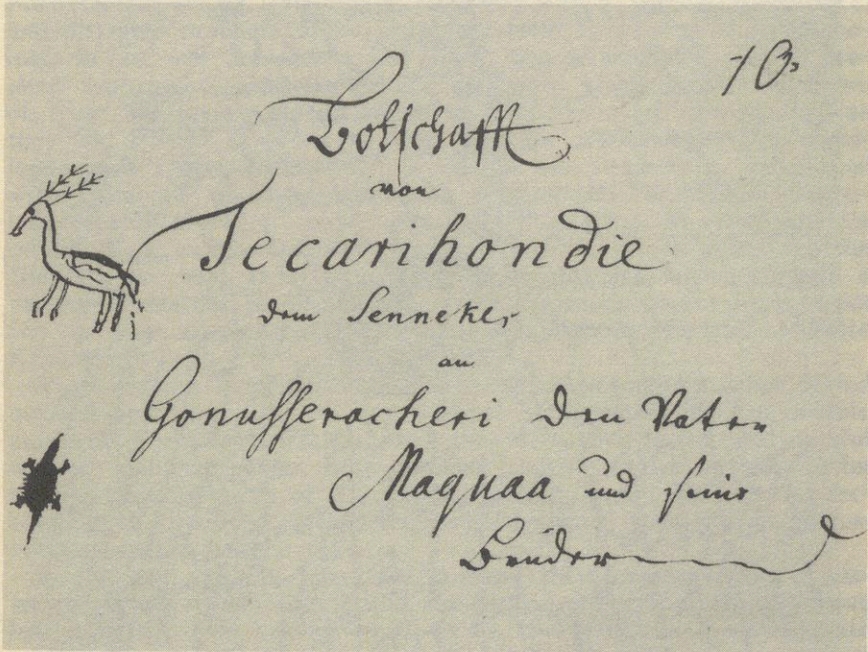 10.
Botschafft
von
Tecarihondie
dem Senneker
an
Gonusseracheri den Vater
Maquaa und seine
Brüder